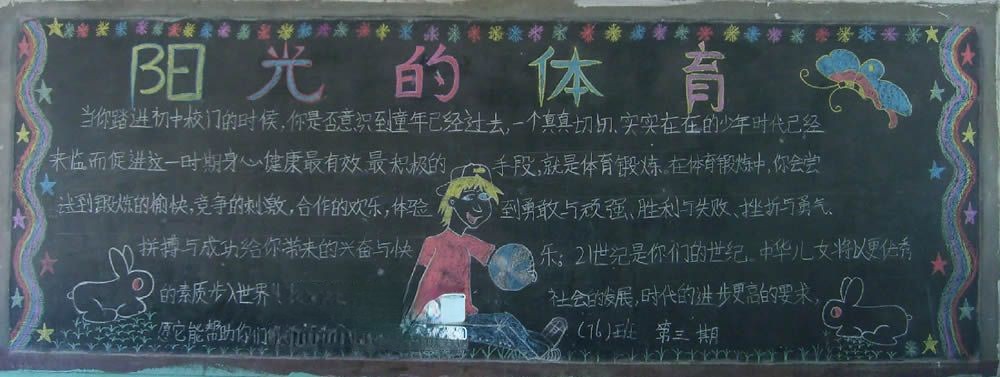 阳光的体育
当你踏进初中校门的时候,你是否意识到童年已经过去,一个真真切切、实实在在的少年时代已经
来临而促进这一时期身心健康最有效、最积极的手段,就是体育锻炼。在体育锻炼中,你会尝
到锻炼的愉快,竞争的刺激,合作的欢乐,体验到勇敢与顽强、胜利与失败、挫折与勇气、
拼搏与成功给你带来的兴奋与快乐;21世纪是你们的世纪。中华儿女将以更优秀
的素质步入世界 社会的发展,时代的进步更高的要求,
愿它能帮助你们 (76)班 第三期